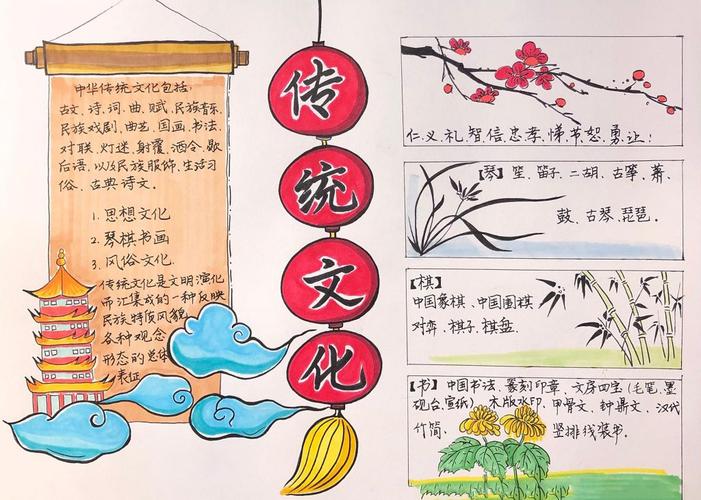 中华传统文化包括:
古文、诗、词、曲、赋、民族音乐、
民族戏剧、曲艺、国画、书法、
对联、灯迷、射覆、洒令、歇
后语、以及民族服饰、生活习
俗、古典诗文。
1. 思想文化
2. 琴棋书画
3. 风俗文化.
传统文化是文明演化
而汇集成的一种反映
民族特质风貌
各种观念
形态的总体
表征
传
统
文
化
仁、义、礼、智、信、忠、孝、悌、节、恕、勇、让;
【琴】笙、笛子、二胡、古筝、萧、
鼓、古琴、琵琶。
【棋】
中国象棋、中国围棋
对弈、棋子、棋盘.
【书】中国书法、篆刻印章、文房四宝(毛笔、墨
砚台、宣纸)、木版水印、甲骨文、钟鼎文、汉代
竹简、竖排线装书.